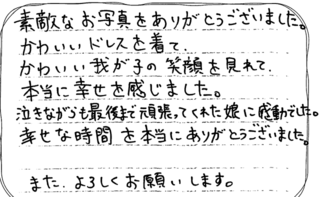 素敵なお写真をありがとうございました。
かわいいドレスを着て、
かわいい我が子の笑顔を見れて、
本当に幸せを感じました。
泣きながらも最後まで頑張ってくれた娘に感動でした。
幸せな時間を本当にありがとうございました。
また、よろしくお願いします。